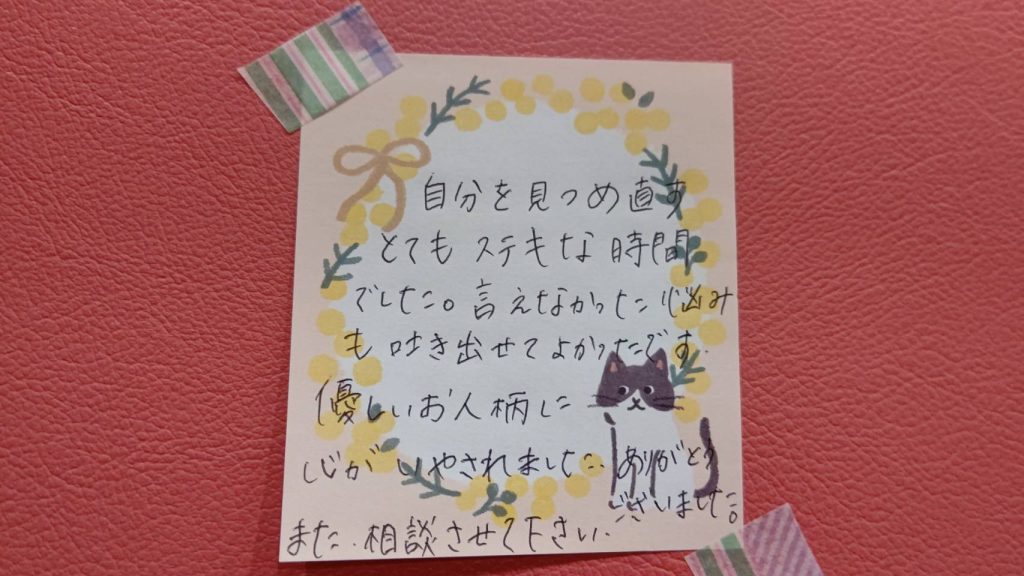 自分を見つめ直す
とてもステキな時間
でした。言えなかった悩み
も吐き出せてよかったです.
優しいお人柄に
心がいやされました. ありがとう
ございました。
また.相談させて下さい.